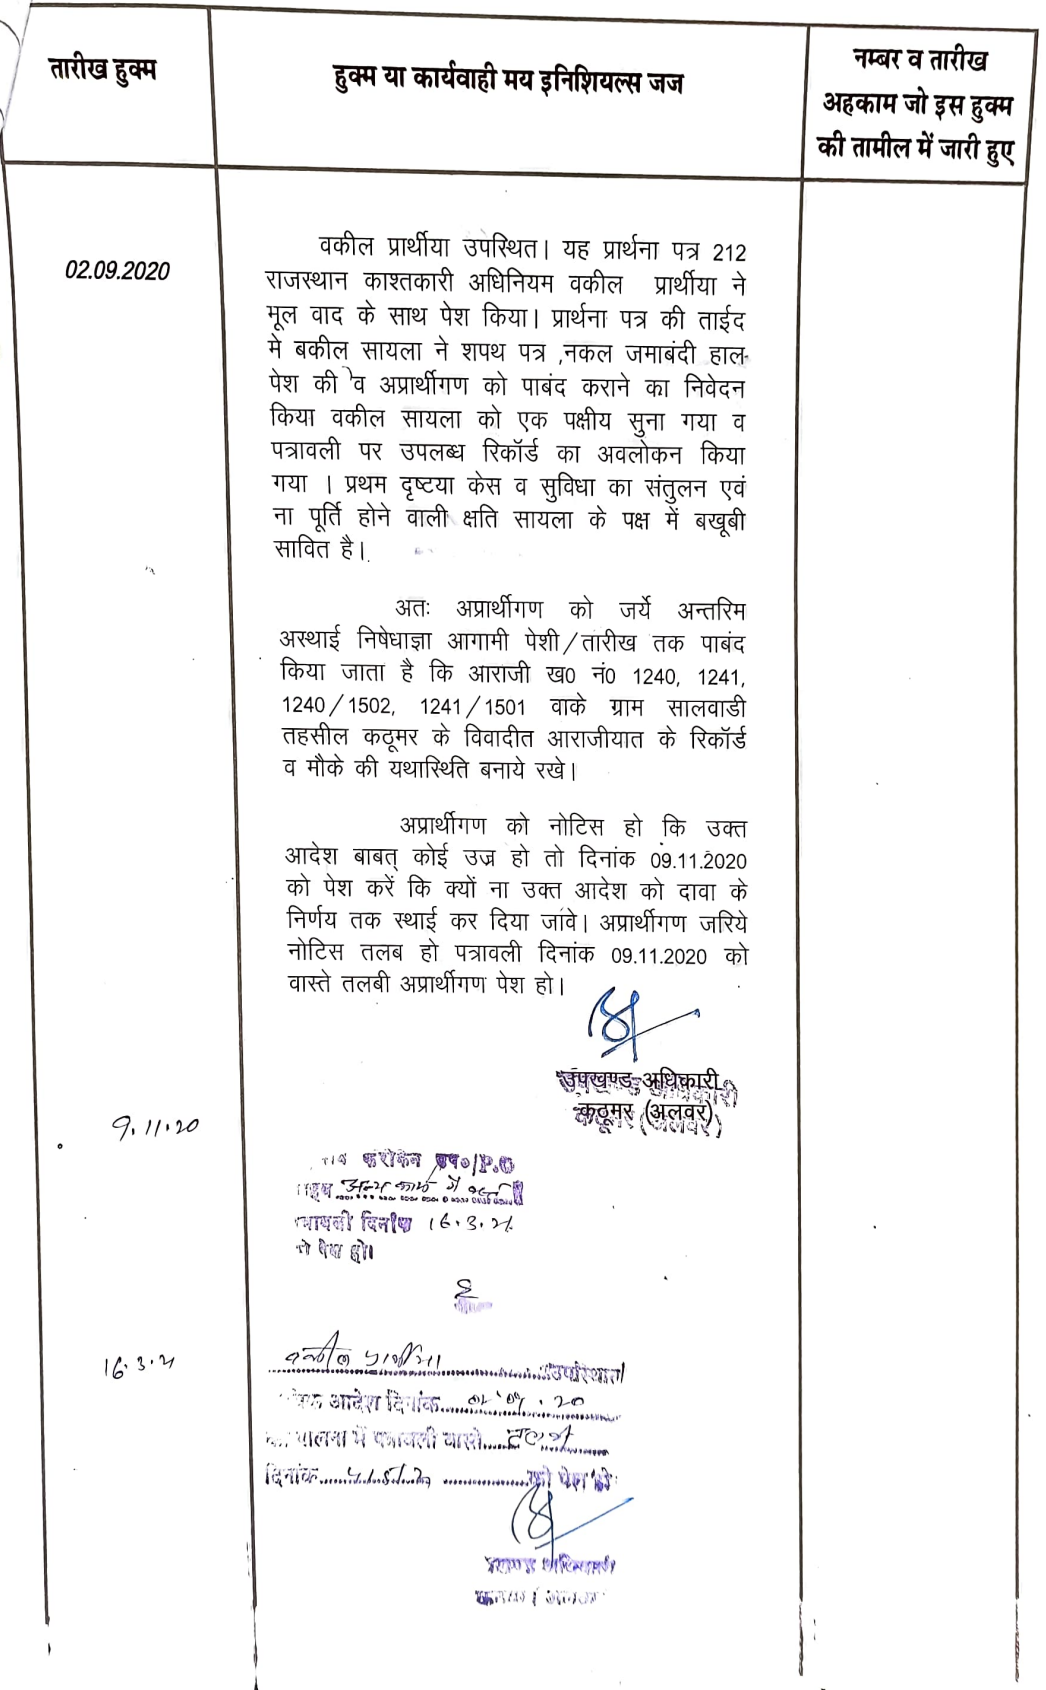 तारीख हुक्म
हुक्म या कार्यवाही मय इनिशियल्स जज
नम्बर व तारीख
अहकाम जो इस हुक्म
की तामील में जारी हुए
02.09.2020
वकील प्रार्थीया उपस्थित। यह प्रार्थना पत्र 212
राजस्थान काश्तकारी अधिनियम वकील प्रार्थीया ने
मूल वाद के साथ पेश किया। प्रार्थना पत्र की ताईद
मे बकील सायला ने शपथ पत्र ,नकल जमाबंदी हाल
पेश की व अप्रार्थीगण को पाबंद कराने का निवेदन
किया वकील सायला को एक पक्षीय सुना गया व
पत्रावली पर उपलब्ध रिकॉर्ड का अवलोकन किया
गया । प्रथम दृष्टया केस व सुविधा का संतुलन एवं
ना पूर्ति होने वाली क्षति सायला के पक्ष में बखूबी
सावित है।
अतः अप्रार्थीगण को जर्ये अन्तरिम
अस्थाई निषेधाज्ञा आगामी पेशी/तारीख तक पाबंद
किया जाता है कि आराजी ख0 नं0 1240, 1241,
1240/1502, 1241/1501 वाके ग्राम सालवाडी
तहसील कठूमर के विवादीत आराजीयात के रिकॉर्ड
व मौके की यथास्थिति बनाये रखे।
अप्रार्थीगण को नोटिस हो कि उक्त
आदेश बाबत् कोई उज्र हो तो दिनांक 09.11.2020
को पेश करें कि क्यों ना उक्त आदेश को दावा के
निर्णय तक स्थाई कर दिया जावे। अप्रार्थीगण जरिये
नोटिस तलब हो पत्रावली दिनांक 09.11.2020 को
वास्ते तलबी अप्रार्थीगण पेश हो।
उपखण्ड अधिकारी
कठूमर (अलवर)
9.11.20
/P.O
अन्य कार्य में
दिनांक 16.3.21
पेश हो।
16.3.21
वकील प्रार्थीया उपस्थित
आदेश दिनांक 02.09.20
पालना में पत्रावली वास्ते तलबी
दिनांक को पेश हो